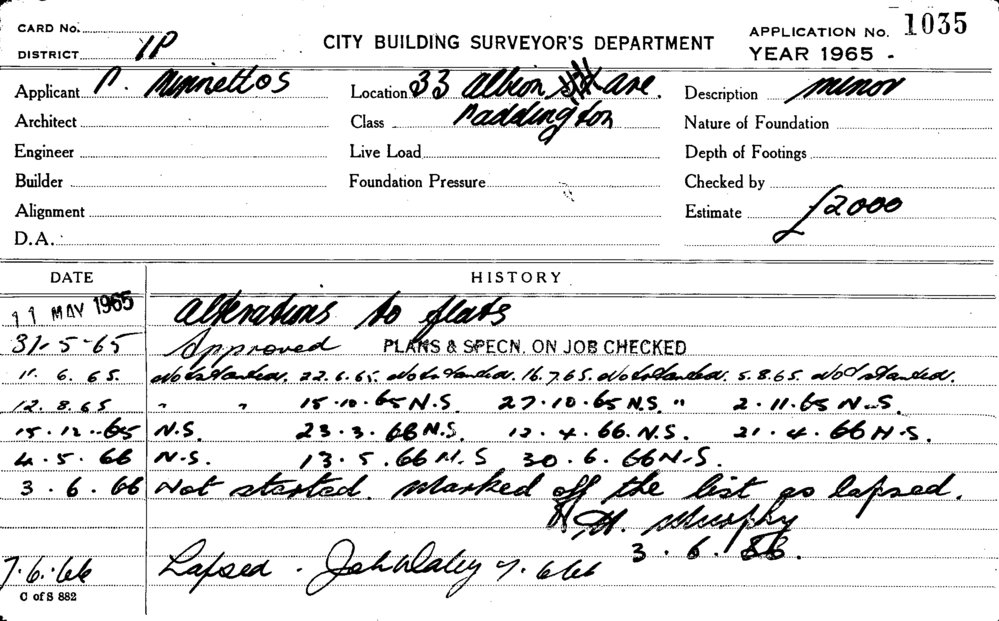 CARD No.
DISTRICT 1P
CITY BUILDING SURVEYOR'S DEPARTMENT
APPLICATION No. 1035
YEAR 1965 -
Applicant
Location 33 Albion Ave.
Description minor
Architect
Class Paddington
Nature of Foundation
Engineer
Live Load
Depth of Footings
Builder
Foundation Pressure
Checked by
Alignment
Estimate £2000
D.A.
DATE HISTORY
11 MAY 1965 Alterations to flats
31-5-65 Approved PLANS & SPECN. ON JOB CHECKED
11. 6. 65. Not started. 22.6.65. Not started. 16.7.65. Not started. 5.8.65. Not started.
12. 8. 65 " " 15.10.65 N.S. 27.10.65 N.S. " 2.11.65 N.S.
15.12.65 N.S. 23.3.66 N.S. 12.4.66. N.S. 21.4.66 N.S.
4.5.66 N.S. 13.5.66 N.S 30.6.66 N.S.
3.6.66 Not started. Marked off the list as lapsed.
H. Murphy
3.6.66.
7.6.66 Lapsed. John Daley 7.6.66
C of S 882